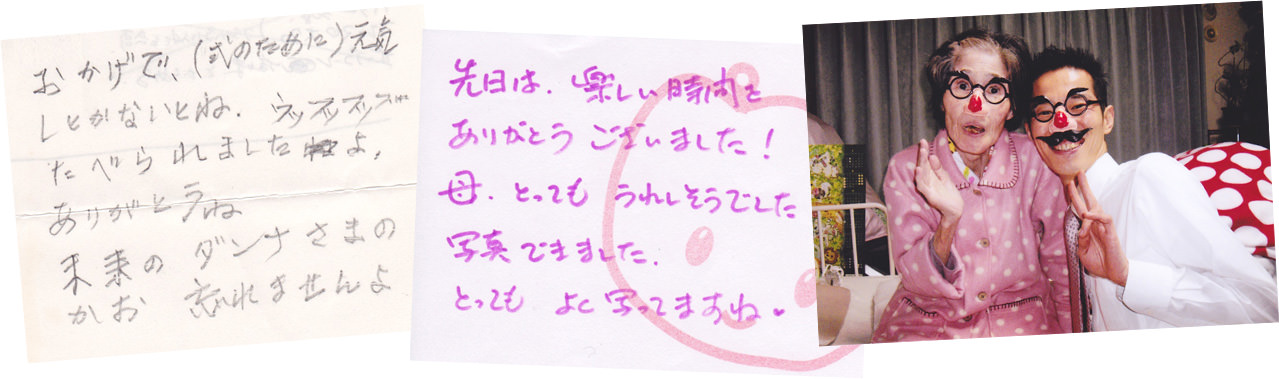 おかげで、(式のために)元気
しとかないとね.
たべられましたよ.
ありがとうね
未来の ダンナさまの
かお 忘れませんよ
先日は、楽しい時間を
ありがとう ございました!
母、とっても うれしそうでした
写真 できました.
とっても よく写ってますね♥